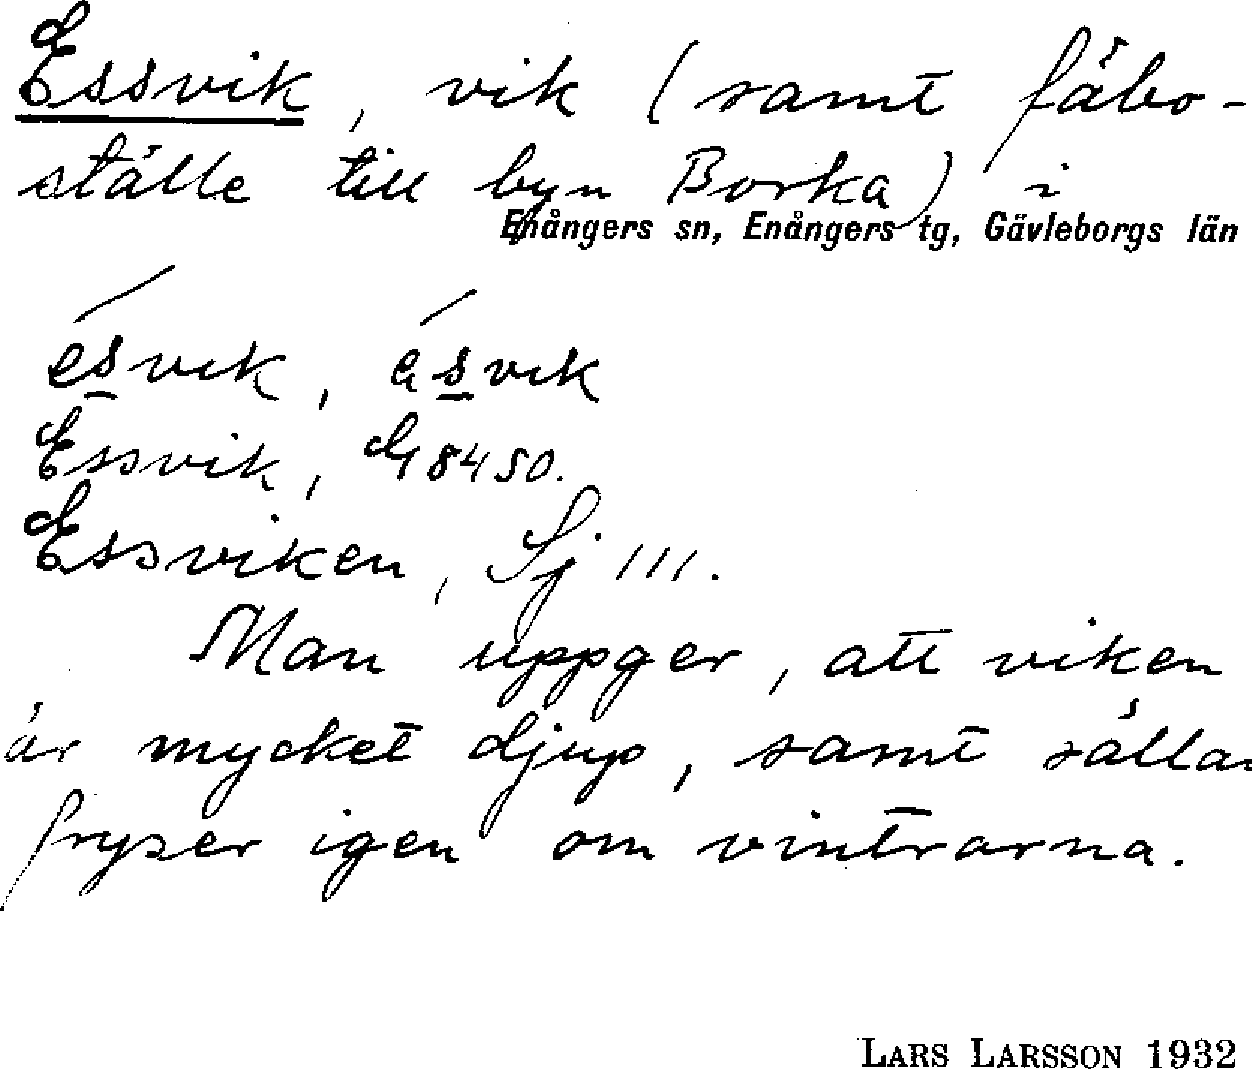 Essvik, vik (samt fäbo-
ställe till byn Borka) i
Enångers sn, Enångers tg, Gävleborgs län
ésvik, ésvik
Essvik, G 8450.
Essviken, Sj 111.
Man uppger, att viken
är mycket djup, samt sällan
fryser igen om vintrarna.
LARS LARSSON 1932